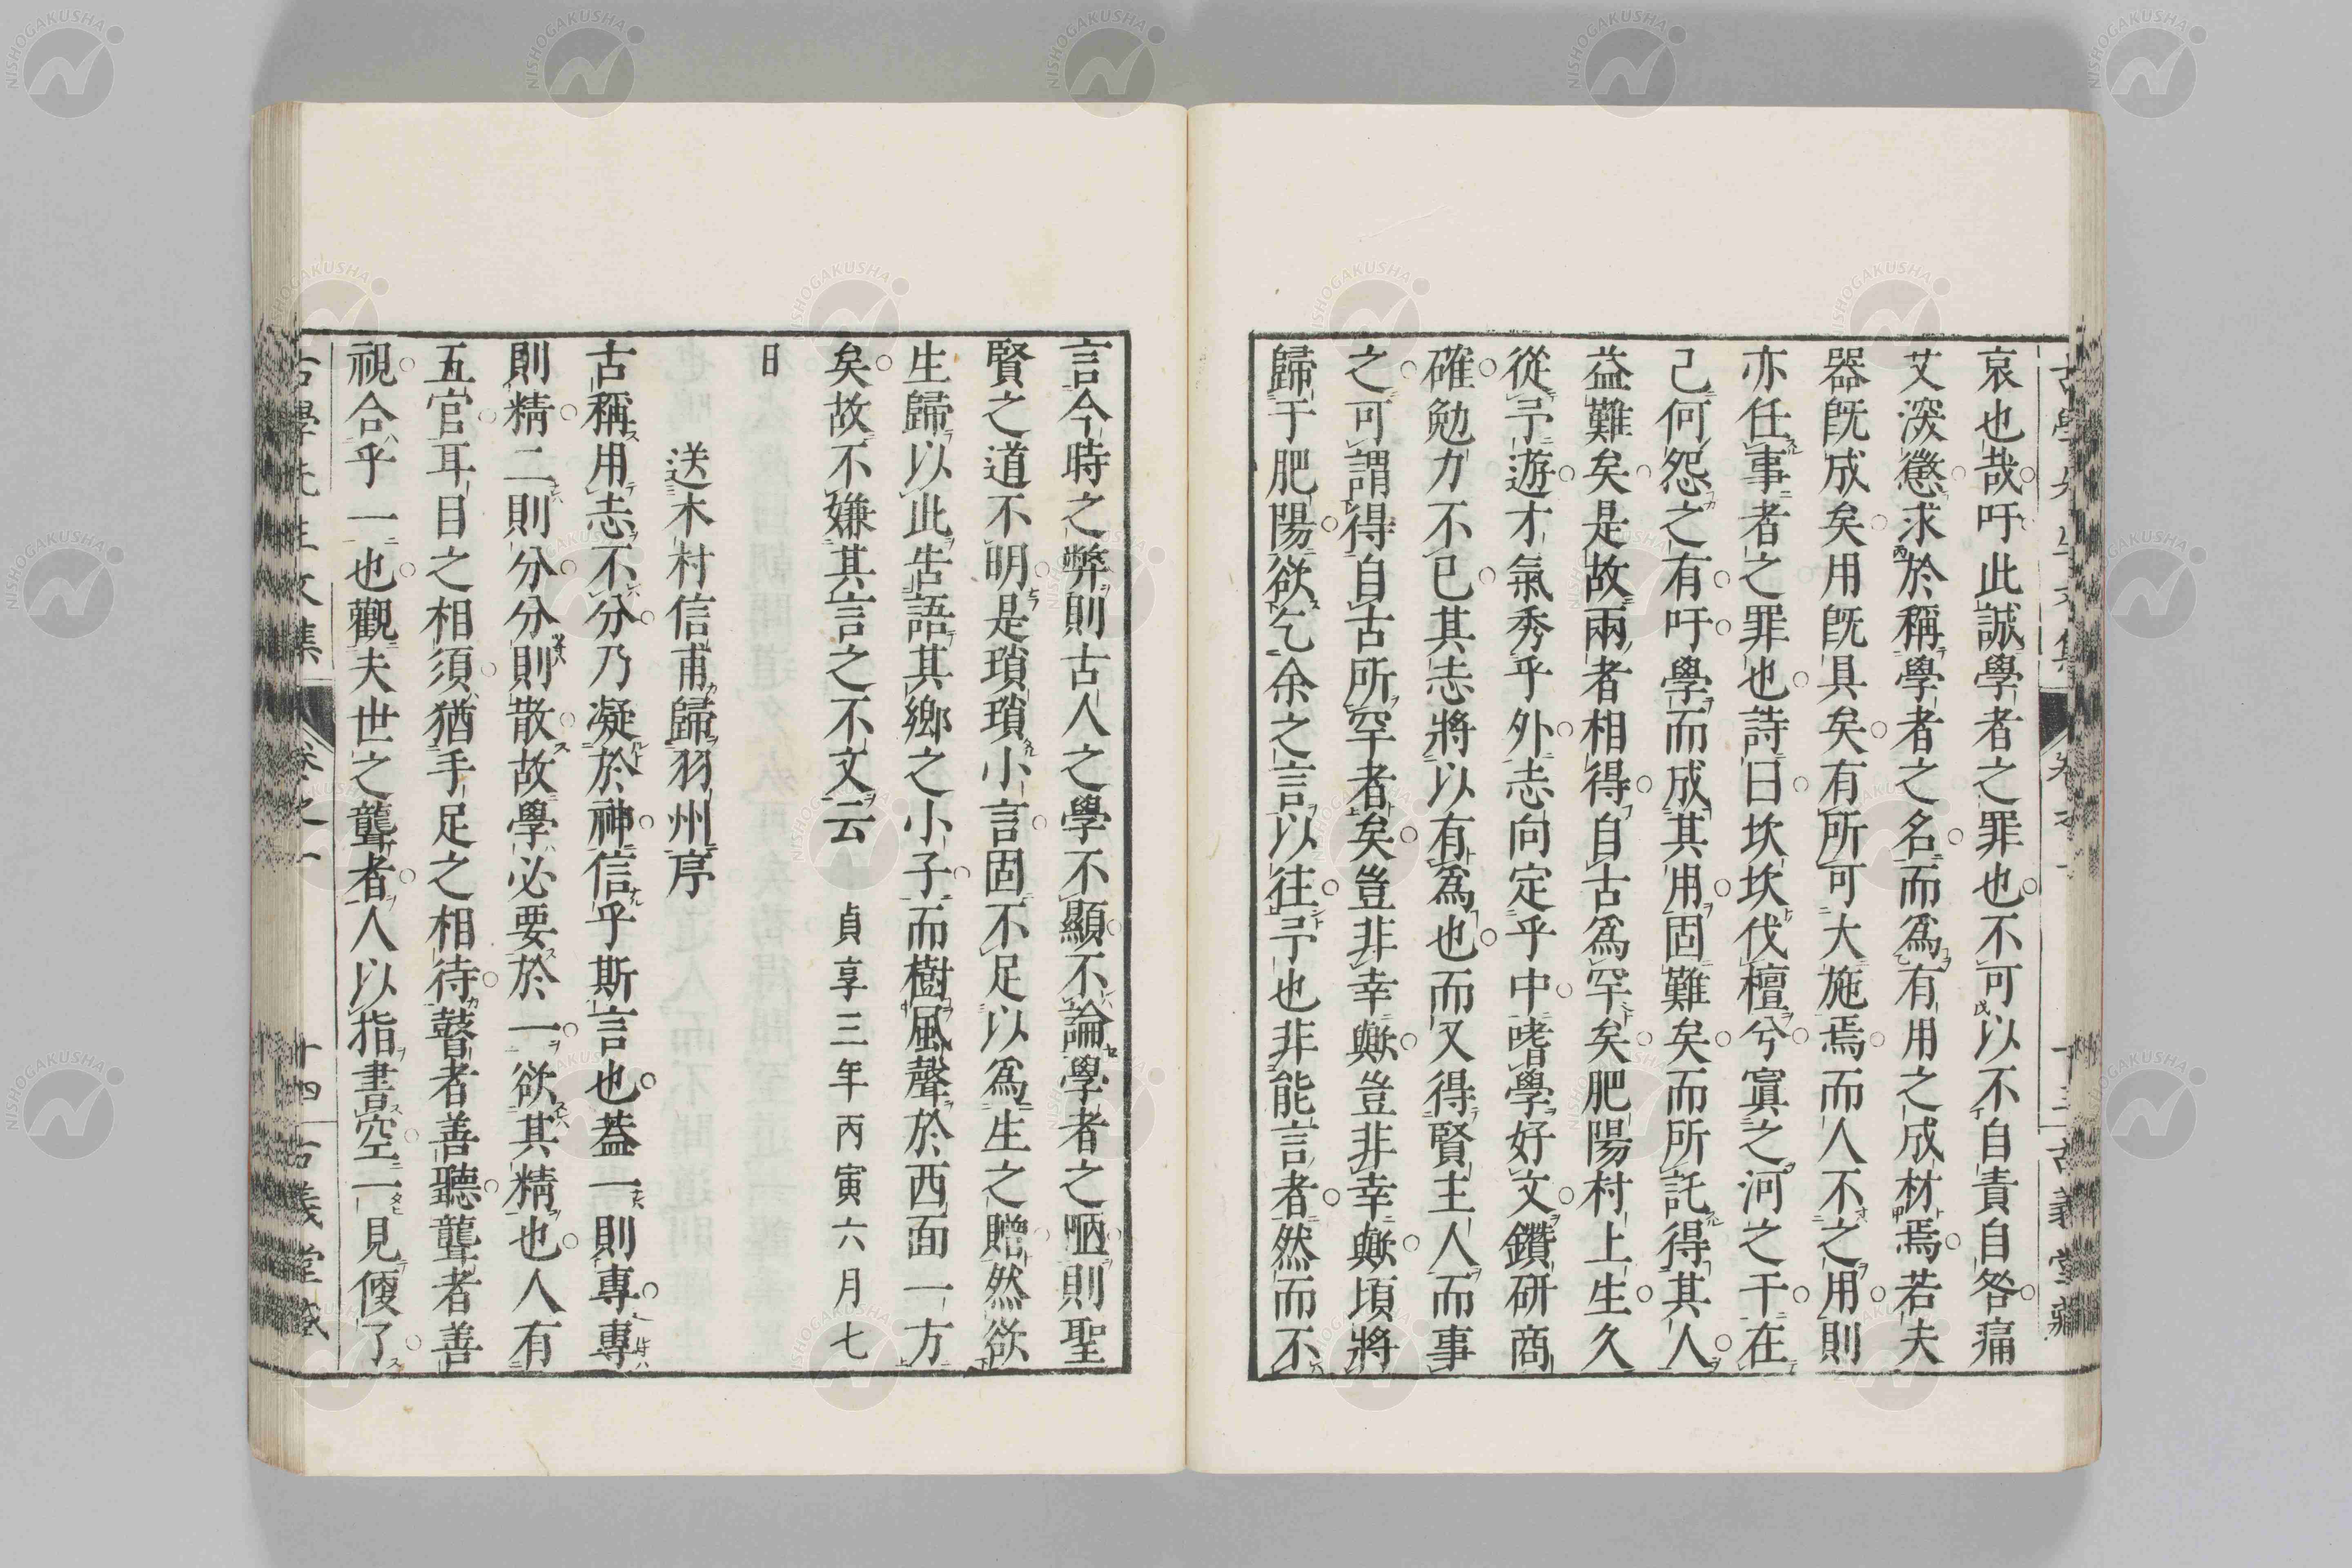 哀也哉吁此誠學者之罪也不可以不自責自咎痛
艾深懲求於稱學者之名而爲有用之成材焉若夫
器旣成矣用旣具矣有所可大施焉而人不之用則
亦任事者之罪也詩曰坎坎伐檀兮寘之河之干在
己何怨之有吁學而成其用固難矣而所託得其人
益難矣是故兩者相得自古爲罕矣肥陽村上生久
從予遊才氣秀乎外志向定乎中嗜學好文鑽研商
確勉力不已其志將以有爲也而又得賢主人而事
之可謂得自古所罕者矣豈非幸歟豈非幸歟頃將
歸于肥陽欲乞余之言以往予也非能言者然而不
言今時之弊則古人之學不顯不論學者之陋則聖
賢之道不明是瑣瑣小言固不足以爲生之贈然欲
生歸以此告語其鄉之小子而樹風聲於西面一方
矣故不嫌其言之不文云 貞享三年丙寅六月七
日
送木村信甫歸羽州序
古稱用志不分乃凝於神信乎斯言也蓋一則專專
則精二則分分則散故學必要於一欲其精也人有
五官耳目之相須猶手足之相待瞽者善聽聾者善
視合乎一也觀夫世之聾者人以指書空一見便了
古學先生文集 卷之一 十四 古義堂藏